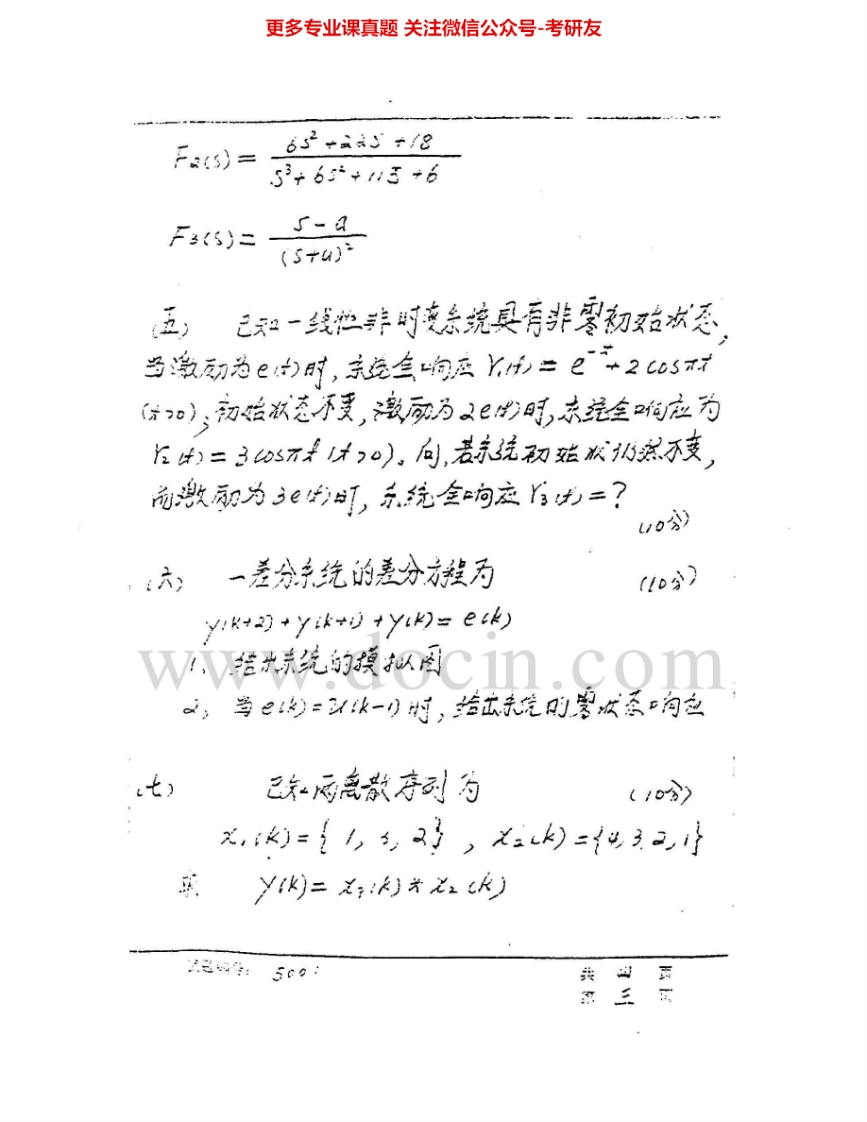 更多专业课真题 关注微信公众号-考研友
F2(s) = 6s²+22s+18 / s³+6s²+11s+6
F3(s) = s-a / (s+a)²
(五) 已知一线性非时变系统具有非零初始状态,
当激励为e(t)时,系统全响应 Y1(t) = e^-t + 2cosπt
(t>0);初始状态不变,激励为2e(t)时,系统全响应为
Y2(t) = 3cosπt (t>0)。问,若系统初始状仍然不变,
而激励为3e(t)时,系统全响应 Y3(t) = ?
(10分)
(六) 一差分系统的差分方程为 (10分)
y(k+2) + y(k+1) + y(k) = e(k)
1、给出系统的模拟图
2、当e(k) = u(k-1)时,给出系统的零状态响应
www.docin.com
(七) 已知两离散序列为 (10分)
x1(k) = { 1, 3, 2 } , x2(k) = {4, 3, 2, 1}
求 y(k) = x1(k) * x2(k)
试题编号: 500
共 四 页
第 三 页